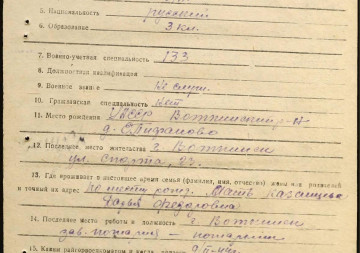 5. Национальность русский
6. Образование 3 кл.
7. Военно-учетная специальность 133
8. Должностная квалификация
9. Военное звание
10. Гражданская специальность
11. Место рождения УАССР Воткинский р-н
д. Епифаново
12. Последнее место жительства г. Воткинск
ул. Спорта, 23.
13. Где проживает в настоящее время семья (фамилия, имя, отчество) жены или родителей
и точный их адрес По месту рожд. Мать Казанцева
Дарья Федоровна
14. Последнее место работы и должность г. Воткинск
- пожарный
15. Каким райгорвоенкоматом и когда